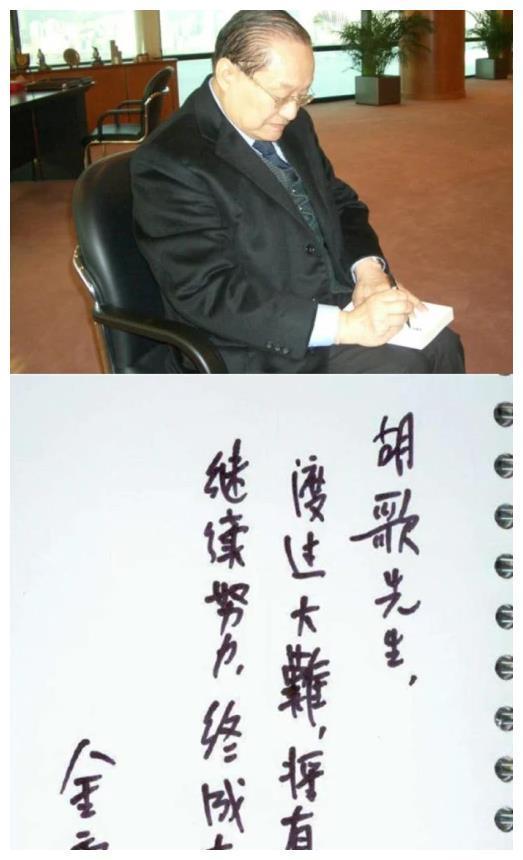 胡歌先生,
渡过大難,将有
继续努力,终成
金